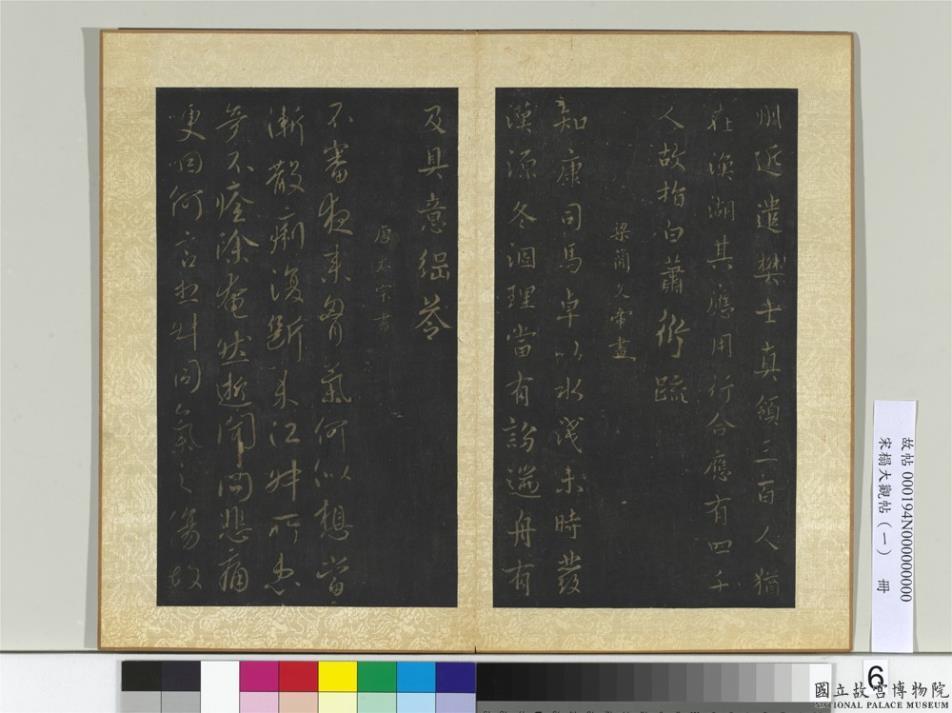 州近遣樊士真領三百人猶
在漁湖其應用行合應有四千
人故指白蕭衍疏
梁蕳文帝書
知康司馬卓以水淺未時發
漢源冬涸理當有詶遄舟有
及具意綱荅
唐太宗書
不審夜來胷氣何似想當
漸散痢復斷未江妹所患
竟不痊除奄然逝聞問悲痛
哽咽何言想妹同氣之傷故
故帖000194N000000000
宋搨大觀帖(一) 冊
6
國立故宮博物院
NATIONAL PALACE MUSEUM